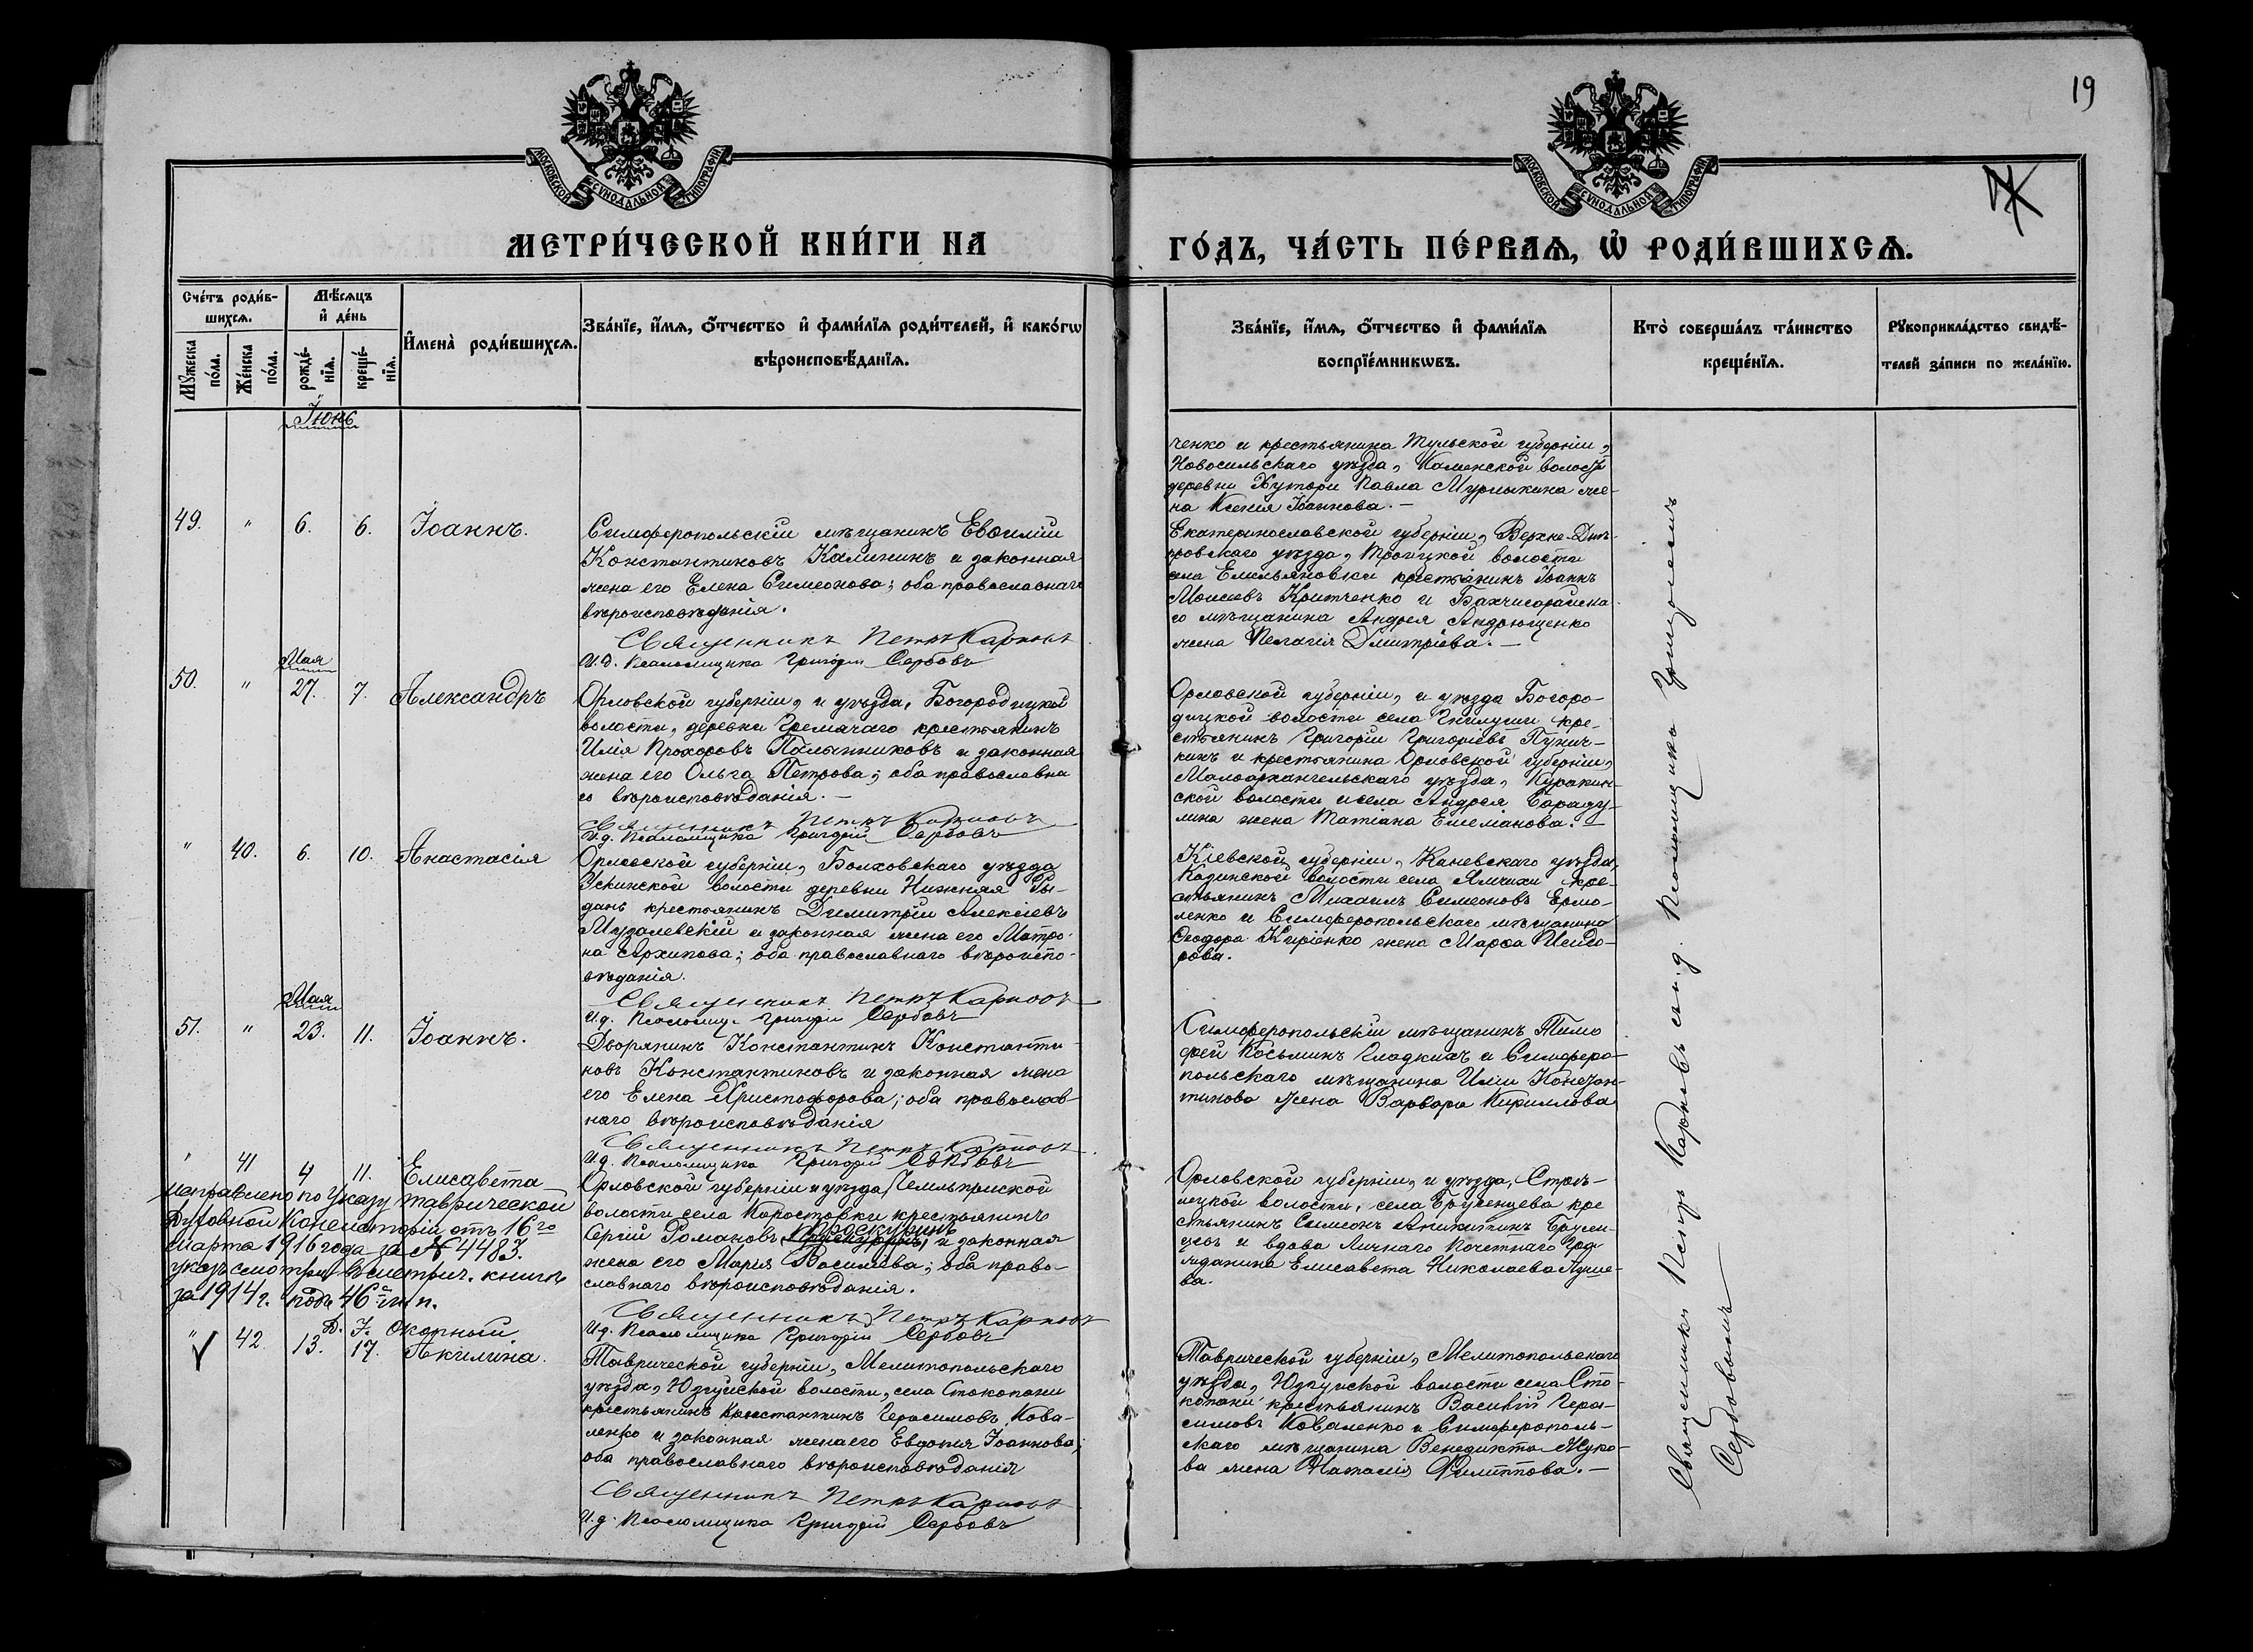 19
МОСКОВСКОЙ СѴНОДАЛЬНОЙ ТИПОГРАФІИ
МОСКОВСКОЙ СѴНОДАЛЬНОЙ ТИПОГРАФІИ
МЕТРИ́ЧЕСКОЙ КНИ́ГИ НА
ГО́ДЪ, ЧА́СТЬ ПЕ́РВАѦ, Ѡ҆ РОДИ́ВШИХСѦ.
Сче́тъ роди́в-
шихсѧ.
Мꙋ́жеска по́ла.
Же́нска по́ла.
Мѣ́сѧцъ
и҆ де́нь
рожде́-
нїѧ.
креще́-
нїѧ.
И҆мена̀ роди́вшихсѧ.
Зва́нїе, и҆́мѧ, ѻ҆́тчество и҆ фами́лїѧ роди́телей, и҆ како́гѡ
вѣроисповѣ́данїѧ.
Зва́нїе, и҆́мѧ, ѻ҆́тчество и҆ фами́лїѧ
воспрїе́мникѡвъ.
Кто̀ соверша́лъ та́инство
креще́нїѧ.
Рꙋкоприкла́дство свидѣ́-
телей за́писи по жела́нїю.
Іюнь
ченко и крестьянина Тульской губерніи,
Новосильскаго уѣзда, Каменской волости
деревни Хутори Павла Мурлыкина же-
на Ксенія Іоаннова. —
49. " 6. 6. Іоаннъ.
Симферопольскій мѣщанинъ Евѳимій
Константиновъ Калининъ и законная
жена его Елена Симеонова; оба православнаго
вѣроисповѣданія.
Священникъ Петръ Карповъ
И.д. Псаломщика Григорій Сербовъ
Екатеринославской губерніи, Верхне-Днѣ-
провскаго уѣзда, Троицкой волости
села Емельяновки крестьянинъ Іоаннъ
Моисеевъ Критченко и Бахчисарайска-
го мѣщанина Андрея Андрющенко
жена Пелагія Димитріева. —
Мая
50. " 27. 7. Александръ
Орловской губерніи, и уѣзда, Богородицкой
волости, деревни Гремячаго крестьянинъ
Илія Прохоровъ Палатниковъ и законная
жена его Ольга Петрова; оба православна
го вѣроисповѣданія. —
Священникъ Петръ Карповъ
И.д. Псаломщика Григорій Сербовъ
Орловской губерніи, и уѣзда Богоро-
дицкой волости села Гнилуши кре-
стьянинъ Григорій Григоріевъ Пунич-
кинъ и крестьянина Орловской губерніи,
Малоархангельскаго уѣзда, Куракин-
ской волости и села Андрея
жена Татіана Емеліанова. —
" 40. 6. 10. Анастасія
Орловской губерніи, Болховскаго уѣзда
волости деревни Нижняя Ры-
дань крестьянинъ Димитрій Алексіевъ
Музалевскій и законная жена его Матро-
на Архипова; оба православнаго вѣроиспо-
вѣданія.
Священникъ Петръ Карповъ
И.д. Псаломщ. Григорій Сербовъ
Кіевской губерніи, Каневскаго уѣзда,
волости села Ямчихи кре-
стьянинъ Михаилъ Симеоновъ Ермо-
ленко и Симферопольскаго мѣщанина
Ѳеодора Киріенко жена Марѳа Исидо-
рова.
Мая
51. " 23. 11. Іоаннъ.
Дворянинъ Константинъ Константи-
новъ Константиновъ и законная жена
его Елена Христофорова; оба православ-
наго вѣроисповѣданія
Священникъ Петръ Карповъ
И.д. Псаломщика Григорій Сербовъ
Симферопольскій мѣщанинъ Тимо
фей Косьминъ Гладкихъ и Симферо-
польскаго мѣщанина Иліи Констан-
тинова жена Варвара Кириллова
" 41 4 11. Елисавета
Орловской губерніи и уѣзда,
волости села Коростовки крестьянинъ
Сергій Романовъ и законная
жена его Марія Василіева; оба право-
славнаго вѣроисповѣданія.
Священникъ Петръ Карповъ
И.д. Псаломщика Григорій Сербовъ
Исправлено по указу Таврической
Духовной Консисторіи отъ 16го
Марта 1916 года за № 4483.
указъ смотри въ метрич. книгѣ
за 1914 г. подъ 46 п.
Орловской губерніи, и уѣзда, Стрѣ-
лецкой волости, села Бруленцева кре
стьянинъ Симеонъ Аникитинъ
и вдова Личнаго Почетнаго Граж-
жданина Елисавета Николаева
ва.
" 42. 13. 17. Акилина.
Таврической губерніи, Мелитопольскаго
уѣзда, Юзкуйской волости, села Стокопани
крестьянинъ Константинъ Герасимовъ Кова-
ленко и законная жена его Евдокія Іоаннова;
оба православнаго вѣроисповѣданія
Священникъ Петръ Карповъ
И.д. Псаломщика Григорій Сербовъ
Таврической губерніи, Мелитопольскаго
уѣзда, Юзкуйской волости села Сто-
копани крестьянинъ Василій Гера-
симовъ Коваленко и Симферополь-
скаго мѣщанина Венедикта Жуко-
ва жена Наталія Филиппова. —
Священникъ Петръ Карповъ съ и.д. Псаломщика Григоріемъ
Сербовымъ